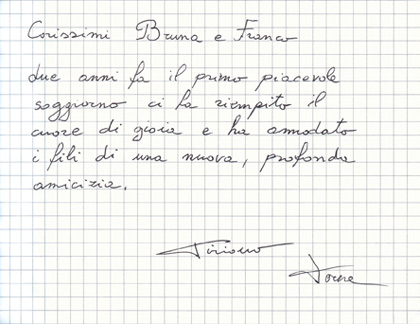 Carissimi Bruna e Franco
due anni fa il primo piacevole
soggiorno ci ha riempito il
cuore di gioia e ha annodato
i fili di una nuova, profonda
amicizia.